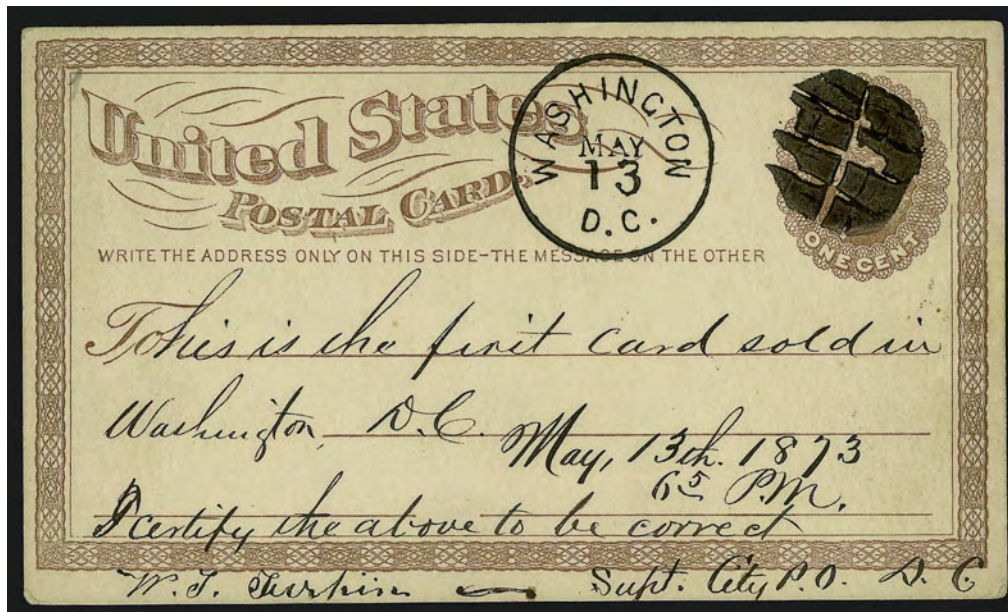 United States
POSTAL CARD.
WASHINGTON
MAY
13
D.C.
ONE CENT
WRITE THE ADDRESS ONLY ON THIS SIDE-THE MESSAGE ON THE OTHER
This is the first card sold in
Washington, D.C.
May, 13th. 1873
6 5 P.M.
I certify the above to be correct
W. T. Supt. City P.O. D.C